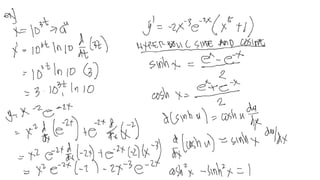 ex]
x = 10^{3t} → a^u
x' = 10^{3t} ln 10 d/dt (3t)
= 10^{3t} ln 10 (3)
= 3·10^{3t} ln 10
y = x^{-2} e^{-2x}
= x^2 d/dx (e^{-2x}) + e^{-2x} d/dx (x^{-2})
= x^2 e^{-2x} d/dx (-2x) + e^{-2x} (-2)(x^{-3})
= x^2 e^{-2x} (-2) - 2x^{-3} e^{-2x}
y' = -2x^{-3} e^{-2x} (x^5 + 1)
HYPERBOLIC SINE AND COSINE
sinh x = e^x - e^{-x} / 2
cosh x = e^x + e^{-x} / 2
d (sinh u) = cosh u du/dx
d/dx (cosh u) = sinh x du/dx
cosh^2 x - sinh^2 x = 1